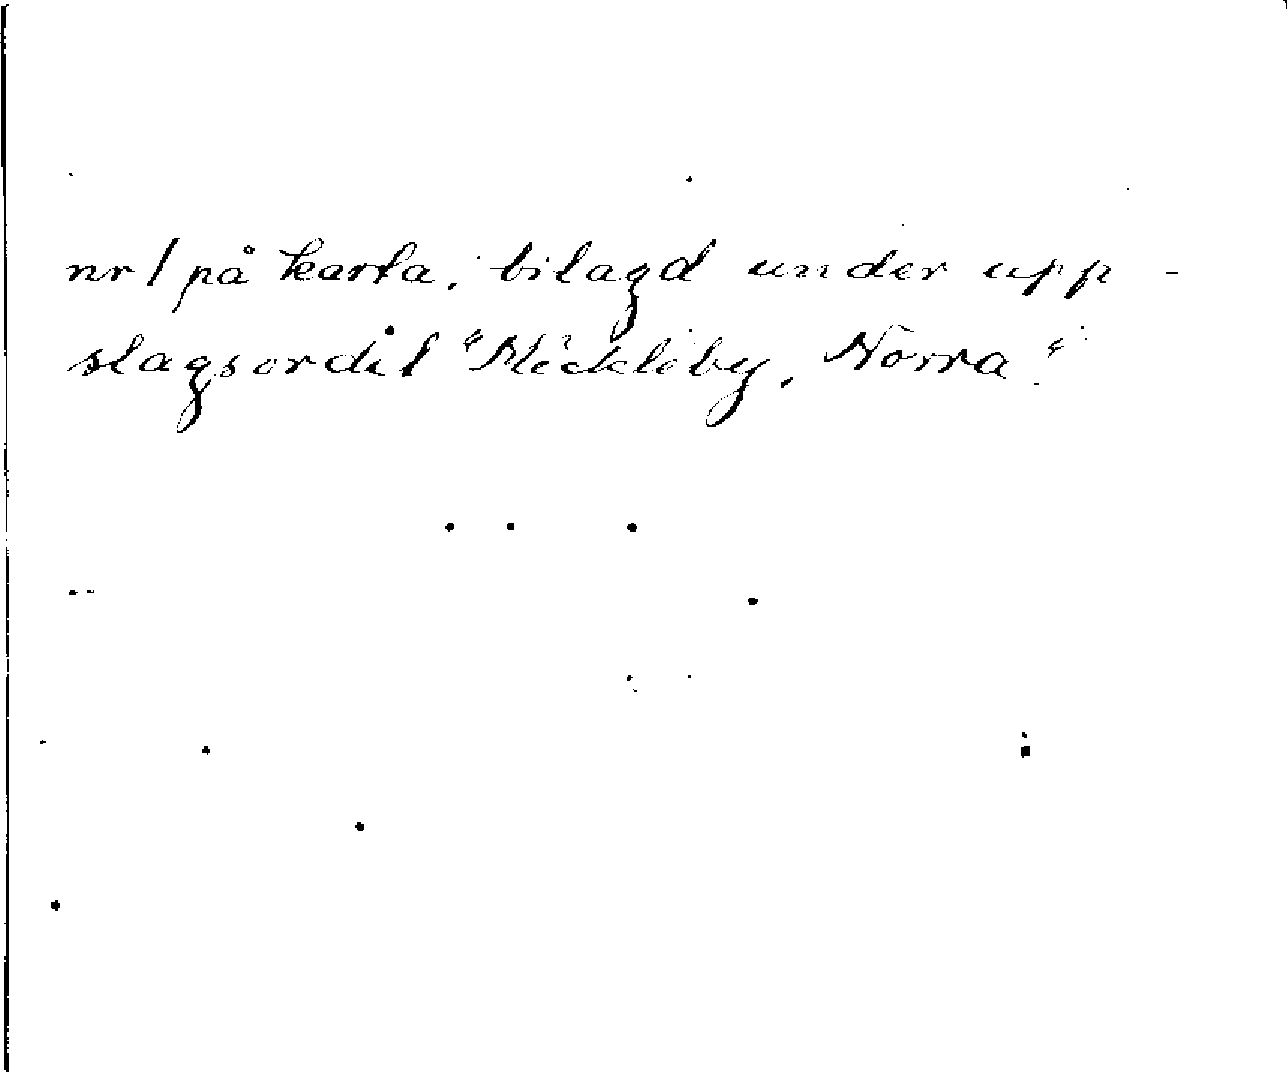 nr 1 på karta, bilagd under upp-
slagsordet "Möckleby, Norra".